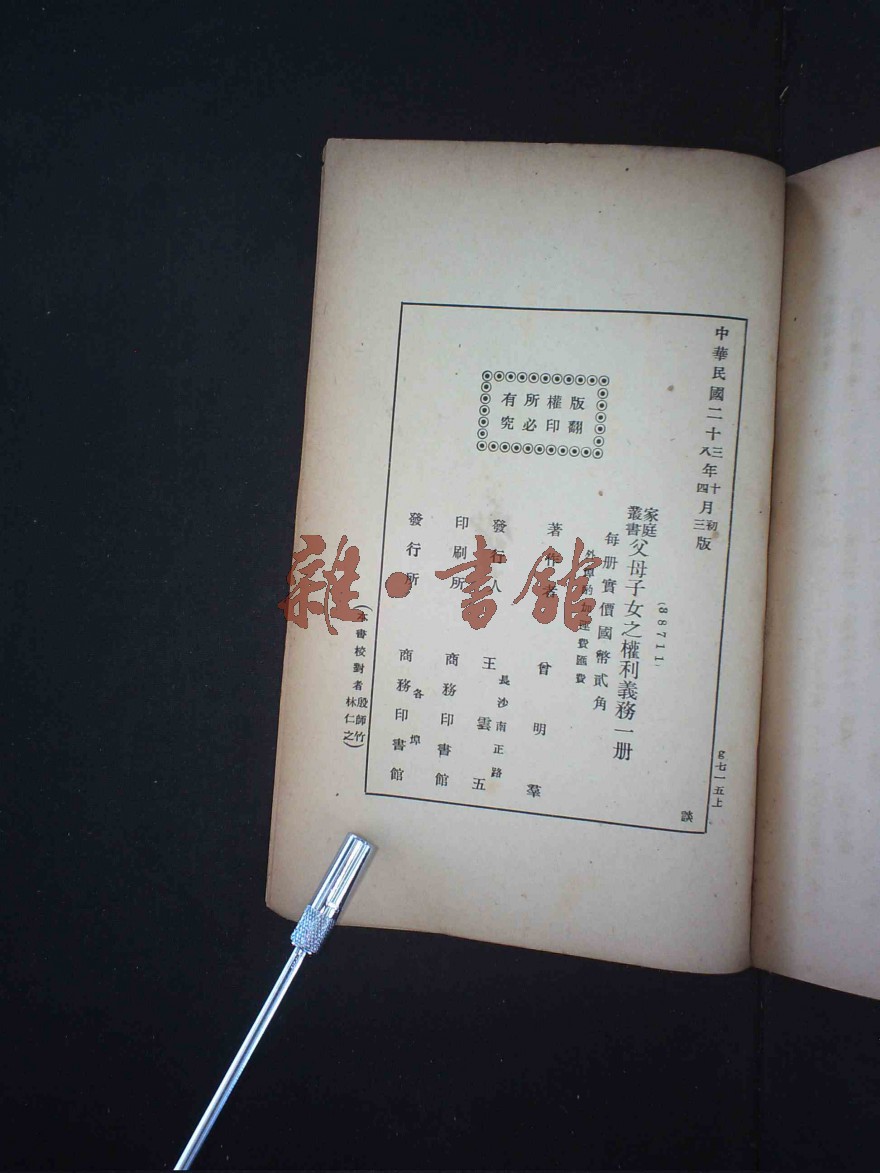 中華民國二十三年十月初版
八 四 三
(88711)
家庭叢書 父母子女之權利義務一册
每册實價國幣貳角
外埠酌加運費匯費
版權所有
翻印必究
著作者 曾明羣
發行人 王雲五
長沙南正路
印刷所 商務印書館
發行所 商務印書館
各埠
(本書校對者 殷師竹 林仁之)
g七一五上
談
雜·書館